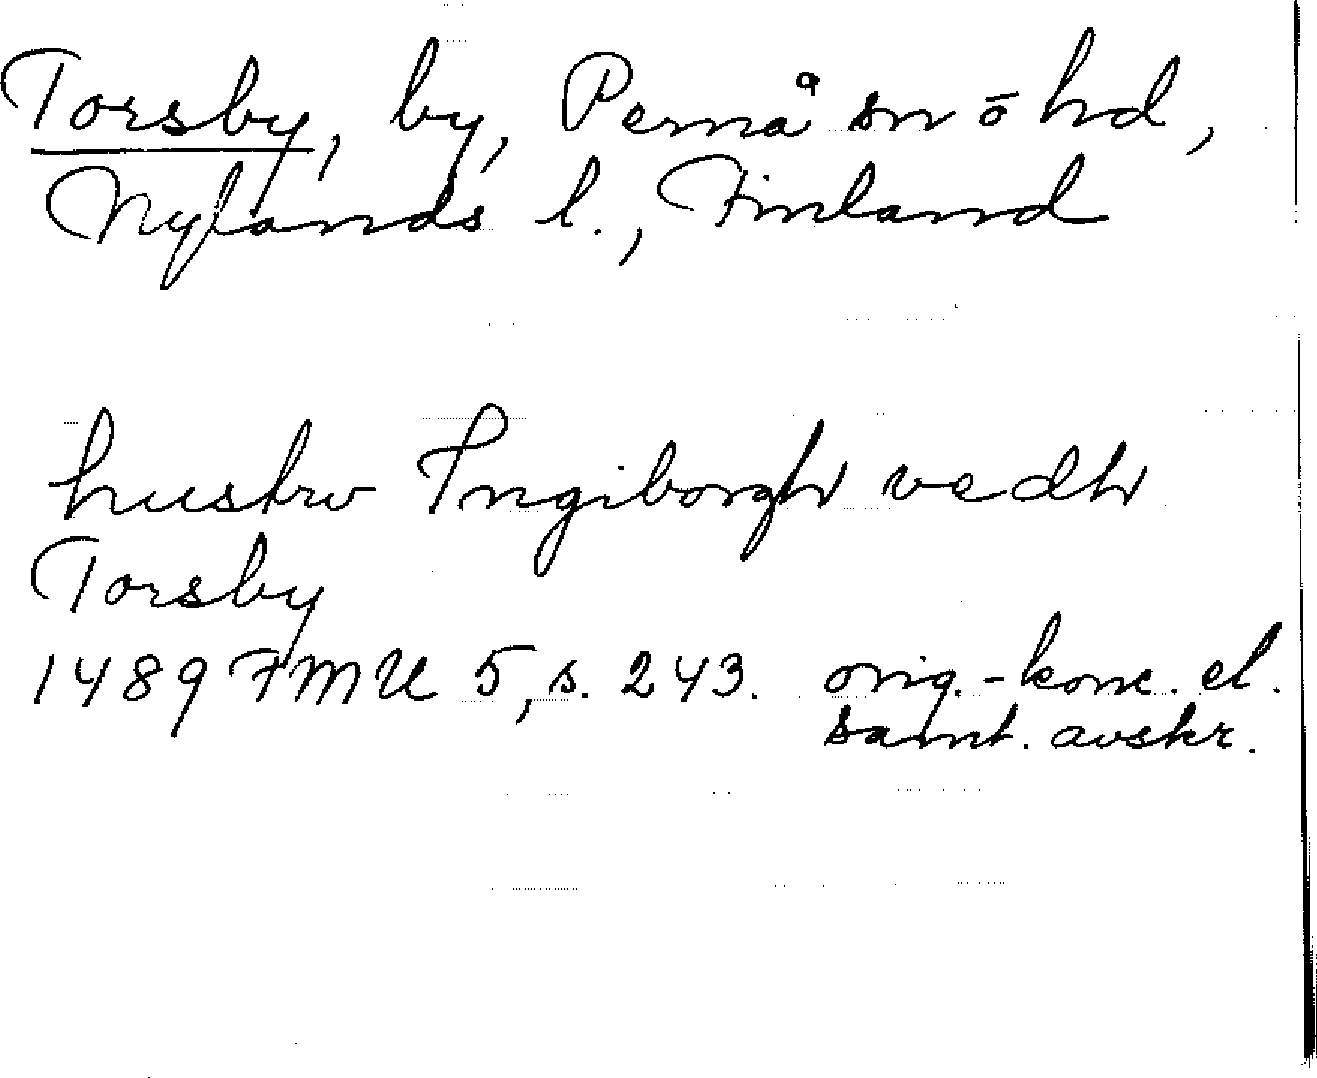 Torsby, by, Pernå sn o hd,
Nylands l., Finland
hustrv Ingiborgh vedh
Torsby
1489 FMU 5, s. 243. orig.-konc. el.
samt. avskr.